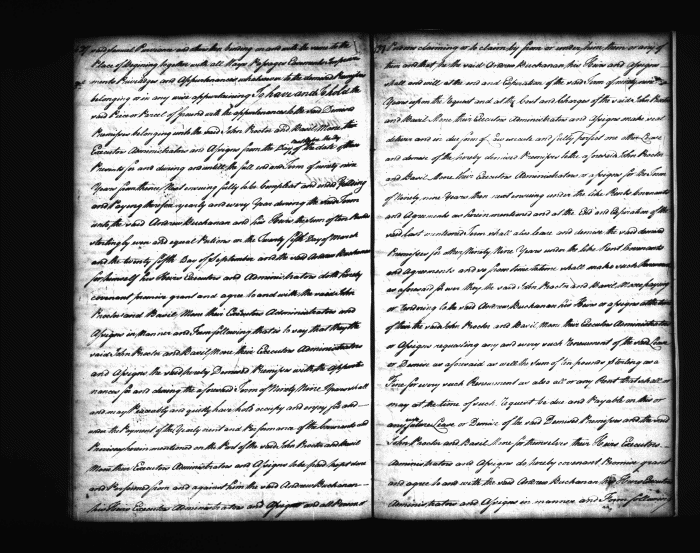 said Samuel Purviance and then binding on and with the same to the
Place of Beginning together with all Ways Passages Easements
Privileges and Appurtenances whatsoever to the demised Premises
belonging or in any wise appertaining To have and to hold the
said Piece or Parcel of Ground with the appurtenances to the said Demised
Premises belonging with the said John Proctor and Basil More their
Executors Administrators and Assigns from the Day of the date of these
Presents for and during and until the full end and Term of ninety nine
Years from thence Next ensuing fully to be Compleat and ended Yielding
and Paying therefor yearly and every Year during the said Term
unto the said Andrew Buchanan and his Heirs the Sum of
sterling by even and equal Portions on the Twenty fifth Day of March
and the twenty fifth Day of September and the said Andrew Buchanan
for himself his Heirs Executors and Administrators doth hereby
covenant promise grant and agree to and with the said John
Proctor and Basil More their Executors Administrators and
Assigns in Manner and Form following that is to say that they the
said John Proctor and Basil More their Executors Administrators
and Assigns the said hereby Demised Premises with the Appurte
nances for and during the aforesaid Term of Ninety Nine Years shall
and may Peaceably and quietly have hold occupy and enjoy for and
under the Payment of the Yearly rent and Performance of the Covenants and
Provisoes herein mentioned on the Part of the said John Proctor and Basil
More their Executors Administrators and Assigns to be paid kept done
and Performed from and against him the said Andrew Buchanan
his Heirs Executors Administrators and Assigns and all Persons
Persons claiming or to claim by from or under him them or any of
them and that he the said Andrew Buchanan his Heirs and Assigns
shall and will at the end and Expiration of the said Term of ninety nine
Years upon the request and at the Cost and Charges of the said John Proctor
and Basil More their Executors Administrators and Assigns make seal
deliver and in due form of Law execute and fully perfect one other Lease
and demise of the hereby demised Premises to the aforesaid John Proctor
and Basil More their Executors Administrators or Assigns for the Term
of Ninety nine Years then next ensuing under the like Rents Covenants
and Agreements as herein mentioned and at the End and Expiration of the
said last mentioned Term shall also lease and demise the said demised
Premises for other Ninety Nine Years under the like Rent Covenants
and Agreements and so from time to time shall make such Renewals
as aforesaid for ever they the said John Proctor and Basil More paying
or tendering to the said Andrew Buchanan his Heirs or Assigns at the time
of them the said John Proctor and Basil More their Executors Administrators
or Assigns requesting any and every such Renewment of the said Lease
or Demise as aforesaid as well the Sum of ten pounds sterling as a
Fine for every such Renewment as also all or any Rent that shall or
may at the time of such Request be due and Payable on this or
any future Lease or Demise of the said Demised Premises and the said
John Proctor and Basil More for themselves their Heirs Executors
Administrators and Assigns do hereby covenant Promise grant
and agree to and with the said Andrew Buchanan his Heirs Executors
Administrators and Assigns in manner and Form following